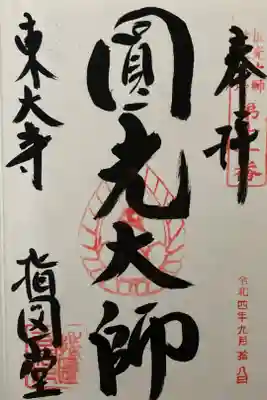 奉拝
令和四年九月拾八日
圓光大師
東大寺
指図堂